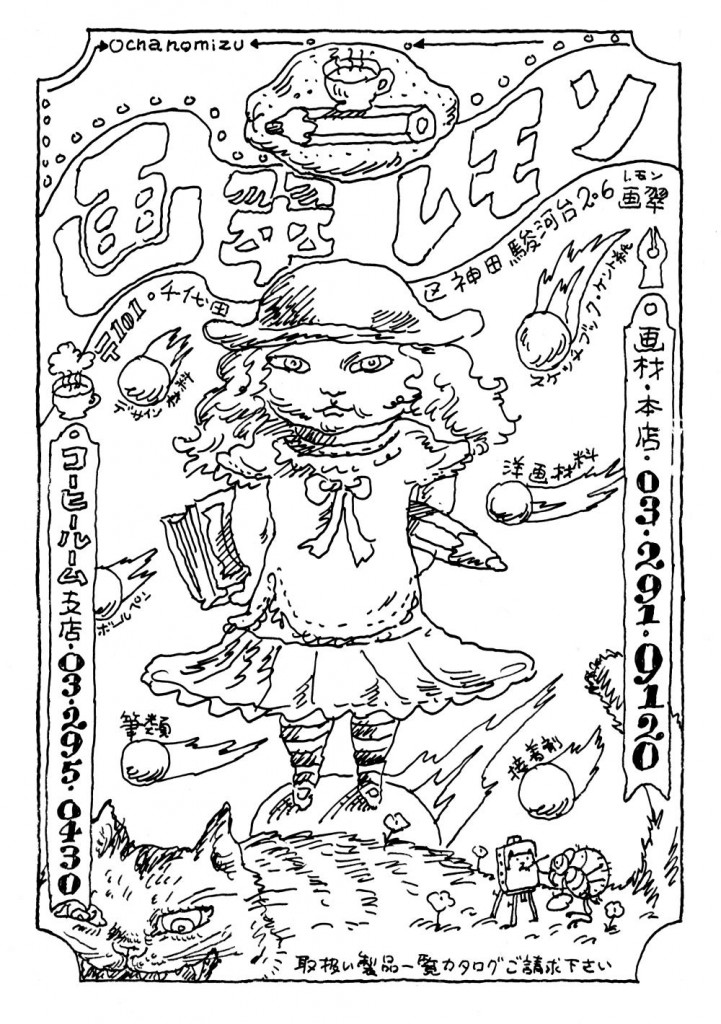 Ochanomizu
画翠レモン
〒101・千代田区神田駿河台2・6
レモン
画翠
スケッチブック・ケント紙
デザイン材料
画材・本店・03・291・9120
洋画材料
コーヒールーム支店・03・295・0430
ボールペン
筆類
接着剤
取扱い製品一覧カタログご請求下さい